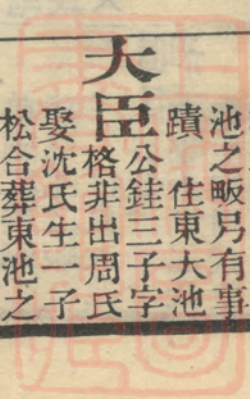 池之畈另有事
蹟 住東大池
大臣
公銈三子字
格非出周氏
娶沈氏生一子
松合葬東池之